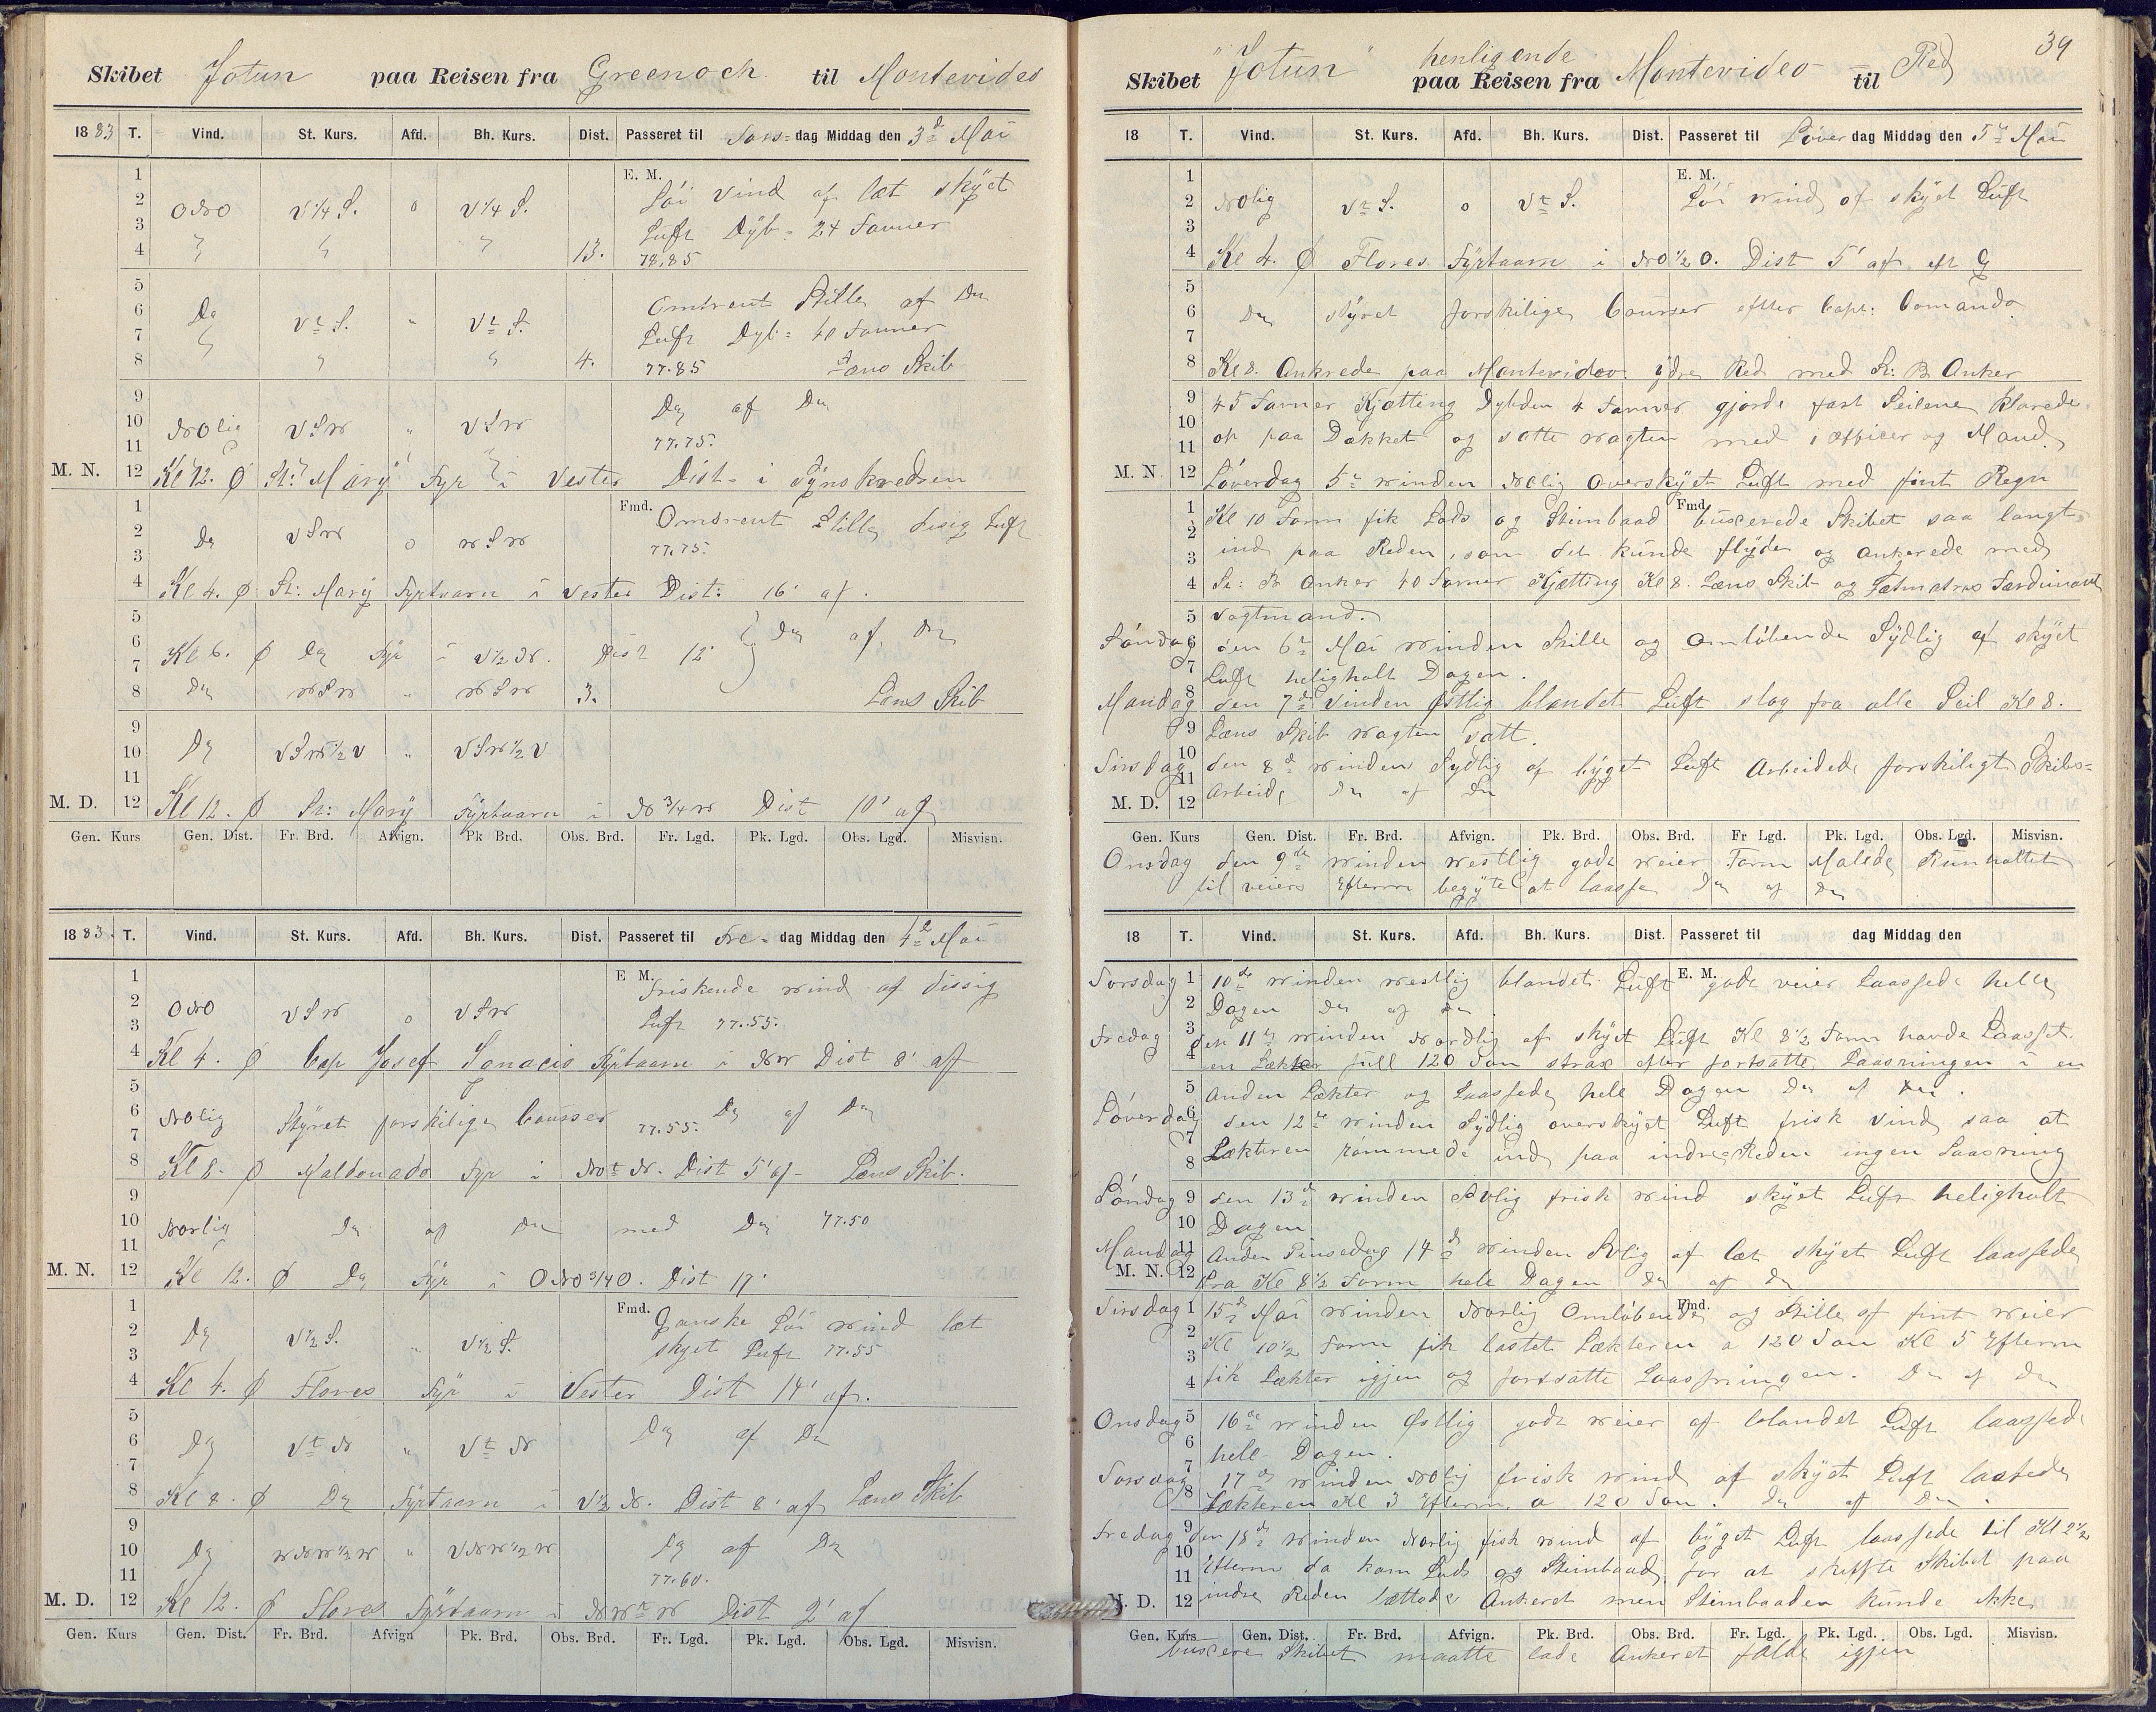 Skibet Jotun paa Reisen fra Greenock til Montevideo
1883 T. Vind. St. Kurs. Afd. Bh. Kurs. Dist. Passeret til Tors-dag Middag den 3d Mai
1 E. M. Löi Vind af læt skÿet
2 ONO V 1/4 S. o V 1/4 S.
3 Luft Dÿb= 24 Favner
4 " " " 13. 78,85
5
6 Do VtS. " VtS. Omtrent Stille af Do
7 Luft Dyb= 40 Favner
8 " " " 4. 77.85 Læns Skib
9 Do af Do
10 NOlig VSW " VSW
11 77.75.
M. N. 12 Kl 12. Ø St: Marÿ Fÿr i Vester Dist= i Sÿnskredsen
1 Fmd. Omtrent Stille disig Luft
2 Do VSW o WSW
3 77.75.
4 Kl 4. Ø St: Marÿ Fÿrtaarn i Vester Dist: 16' af.
5
6 Kl 6. Ø Do Fÿr i V 1/2 N. Dist 12' Do af Do
7
8 Do WSW " WSW 3. Læns Skib
9
10 Do VSW 1/2 V " VSW 1/2 V
11
M. D. 12 Kl 12. Ø St: Marÿ Fÿrtaarn i N 3/4 W Dist 10' af
Gen. Kurs Gen. Dist. Fr. Brd. Afvign. Pk Brd. Obs. Brd. Fr. Lgd. Pk. Lgd. Obs. Lgd. Misvisn.
1883. T. Vind. St. Kurs. Afd. Bh. Kurs. Dist. Passeret til Fre- dag Middag den 4d Mai
1 E M. Friskende Wind af dissig
2 ONO VSW o VSW
3 Luft 77.55.
4 Kl 4. Ø Cap Josef Ignacio Fÿrtaarn i NW Dist 8' af
5
6 NOlig Stÿret forskilige Courser 77.55. Do af Do
7
8 Kl 8. Ø Maldonado Fyr i NOtN. Dist 5' af- Læns Skib.
9
10 Norlig Do af Do med Do 77.50
11
M. N. 12 Kl 12. Ø Do Fÿr i ONO 3/4 O. Dist 17'
1 Fmd. Ganske Löi Wind læt
2 Do V 1/2 S. " V 1/2 S.
3 skyet Luft 77.55
4 Kl 4. Ø Flores Fÿr i Vester Dist 14' af.
5
6 Do VtN " VtN Do af Do
7
8 Kl 8. Ø Do Fÿrtaarn i V 1/2 N. Dist 8' af Læns Skib
9
10 Do WNW 1/2 W " VNW 1/2 W Do af Do
11 77.60.
M. D. 12 Kl 12. Ø Flores Fÿrtaarn i NWtW Dist 9' af
Gen. Kurs Gen. Dist. Fr. Brd. Afvign Pk. Brd. Obs. Brd. Fr. Lgd. Pk. Lgd. Obs. Lgd. Misvisn.
39
Skibet "Jotun" henligende paa Reisen fra Montevideo til Red
18 T. Vind. St. Kurs. Afd. Bh. Kurs. Dist. Passeret til Löver dag Middag den 5te Mai
1 E. M.
2 NOlig VtS. o VtS. Löi Wind af skÿet Luft
3
4 Kl 4. Ø Flores Fÿrtaarn i NO 1/2 O. Dist 5' af
5
6 Do stÿret forskilige Courser efter Capt: Comando
7
8 Kl 8. Ankrede paa Montevideo ÿdre Red med St: B Anker
9 45 Favner Kjætting Dybden 4 Favner gjorde fast Seilene Klarede
10 op paa Dækket og satte Wagten med 1 Officer og Mand.
11
M. N. 12 Löverdag 5te Winden NOlig Overskÿet Luft med fint Regn
1 Kl 10 Form fik Lods og Stimbaad Fmd. buxerede Skibet saa langt
2 ind paa Reden, som det kunde flÿde og ankerede med
3
4 St: B Anker 40 Favner Kjætting Kl 8. Læns Skib og Ferdinand
5 Vagtmand.
Söndag 6 den 6te Mai Winden Stille og omlöbende Sÿdlig af skÿet
7 Luft heligholt Dagen.
Mandag 8 den 7de Vinden Østlig blandet Luft slog fra alle Seil Kl 8.
9 Læns Skib Wagten satt.
Tirsdag 10 den 8de Winden Sydlig af bÿget Luft Arbeidede forskiligt Skibs=
11
M. D. 12 Arbeide Do af Do
Gen. Kurs Gen. Dist. Fr. Brd. Afvign. Pk. Brd. Obs. Brd. Fr Lgd. Pk. Lgd. Obs. Lgd. Misvisn.
Onsdag den 9de Winden Westlig godt Weier Form Malede
til veiers Efterm begÿte at laasse Do af Do
18 T. Vind. St. Kurs. Afd. Bh. Kurs. Dist. Passeret til dag Middag den
Torsdag 1 10de Winden Westlig blandet Luft E. M. godt veier Laassede hele
2 Dagen Do af Do.
Fredag 3 den 11te Winden Nordlig af skÿet Luft Kl 8 1/2 Form havde Laasset
4 en Lækter full 120 Ton strax efter fortsatte Laasningen i en
5 anden Lækter og Laassede hele Dagen Do af Do.
Löverdag 6 den 12te Winden Sÿdlig overskÿet Luft frisk Vind saa at
7
8 Lækteren römmede ind paa indre Reden ingen Laasning
Söndag 9 den 13de Winden SOlig frisk Wind skÿet Luft heligholt
10 Dagen
Mandag 11 Anden Pinsedag 14de Winden SOlig af læt skÿet Luft laassede
M. N. 12 fra Kl 8 1/2 Form hele Dagen Do af Do
Tirsdag 1 15de Mai Winden Norlig Omlöbende Fmd. og Stille af fint Weier
2 Kl 10 1/2 Form fik lastet Lækteren a 120 Ton Kl 5 Efterm
3
4 fik Lækter igjen og fortsatte Laasningen. Do af Do
Onsdag 5 16de Winden Østlig godt Weier af blandet Luft laassede
6 hele Dagen.
7
Torsdag 8 17de Winden NOlig frisk Wind af skÿet Luft lastede
Lækteren Kl 3 Efterm. a 120 Ton. Do af Do.
Fredag 9 den 18de Winden Norlig fisk Wind af bÿget Luft laassede til Kl 2 1/2
10
11 Efterm da kom Lods og Stimbaad for at skiffte Skibet paa
M. D. 12 indre Reden lættede Ankeret men Stimbaaden kunde ikke
Gen. Kurs Gen. Dist. Fr. Brd. Afvign. Pk. Brd. Obs. Brd. Fr. Lgd. Pk. Lgd. Obs. Lgd. Misvisn.
buxere Skibet maatte lade Ankeret falde igjen